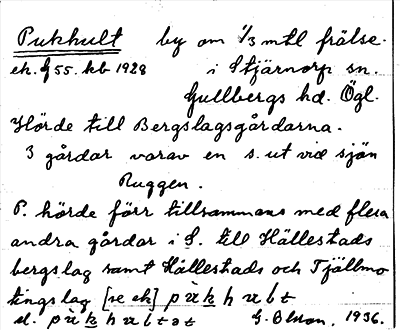 Pukhult by om 1/3 mtl frälse.
ek. § 55. kb 1928 i Stjärnorp sn.
Gullbergs hd. Ögl.
Hörde till Bergslagsgårdarna.
3 gårdar varav en s. ut vid sjön
Ruggen.
P. hörde förr tillsammans med flera
andra gårdar i S. till Hällestads
bergslag samt Hällestads och Tjällmo
tingslag [se ek]
G. Olson. 1936.